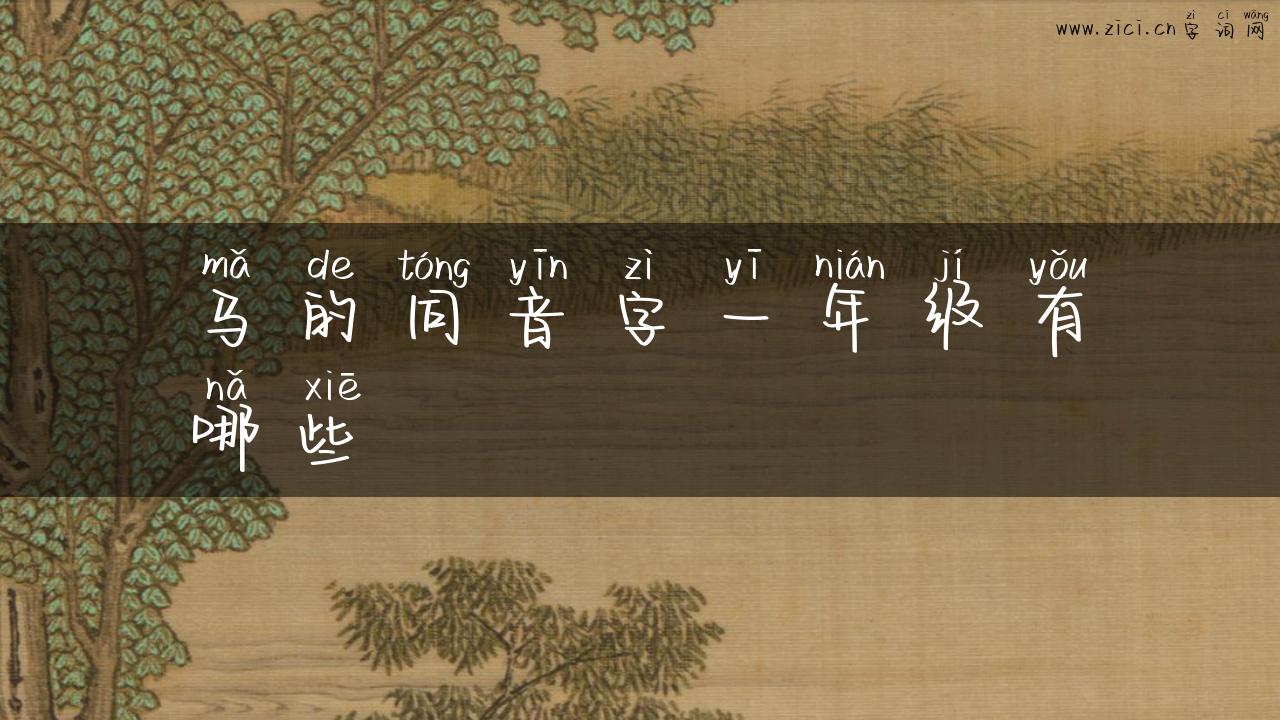 zì cí wǎng
www.zici.cn 字词网
mǎ de tóng yīn zì yī nián jí yǒu
马的同音字一年级有
nǎ xiē
哪些